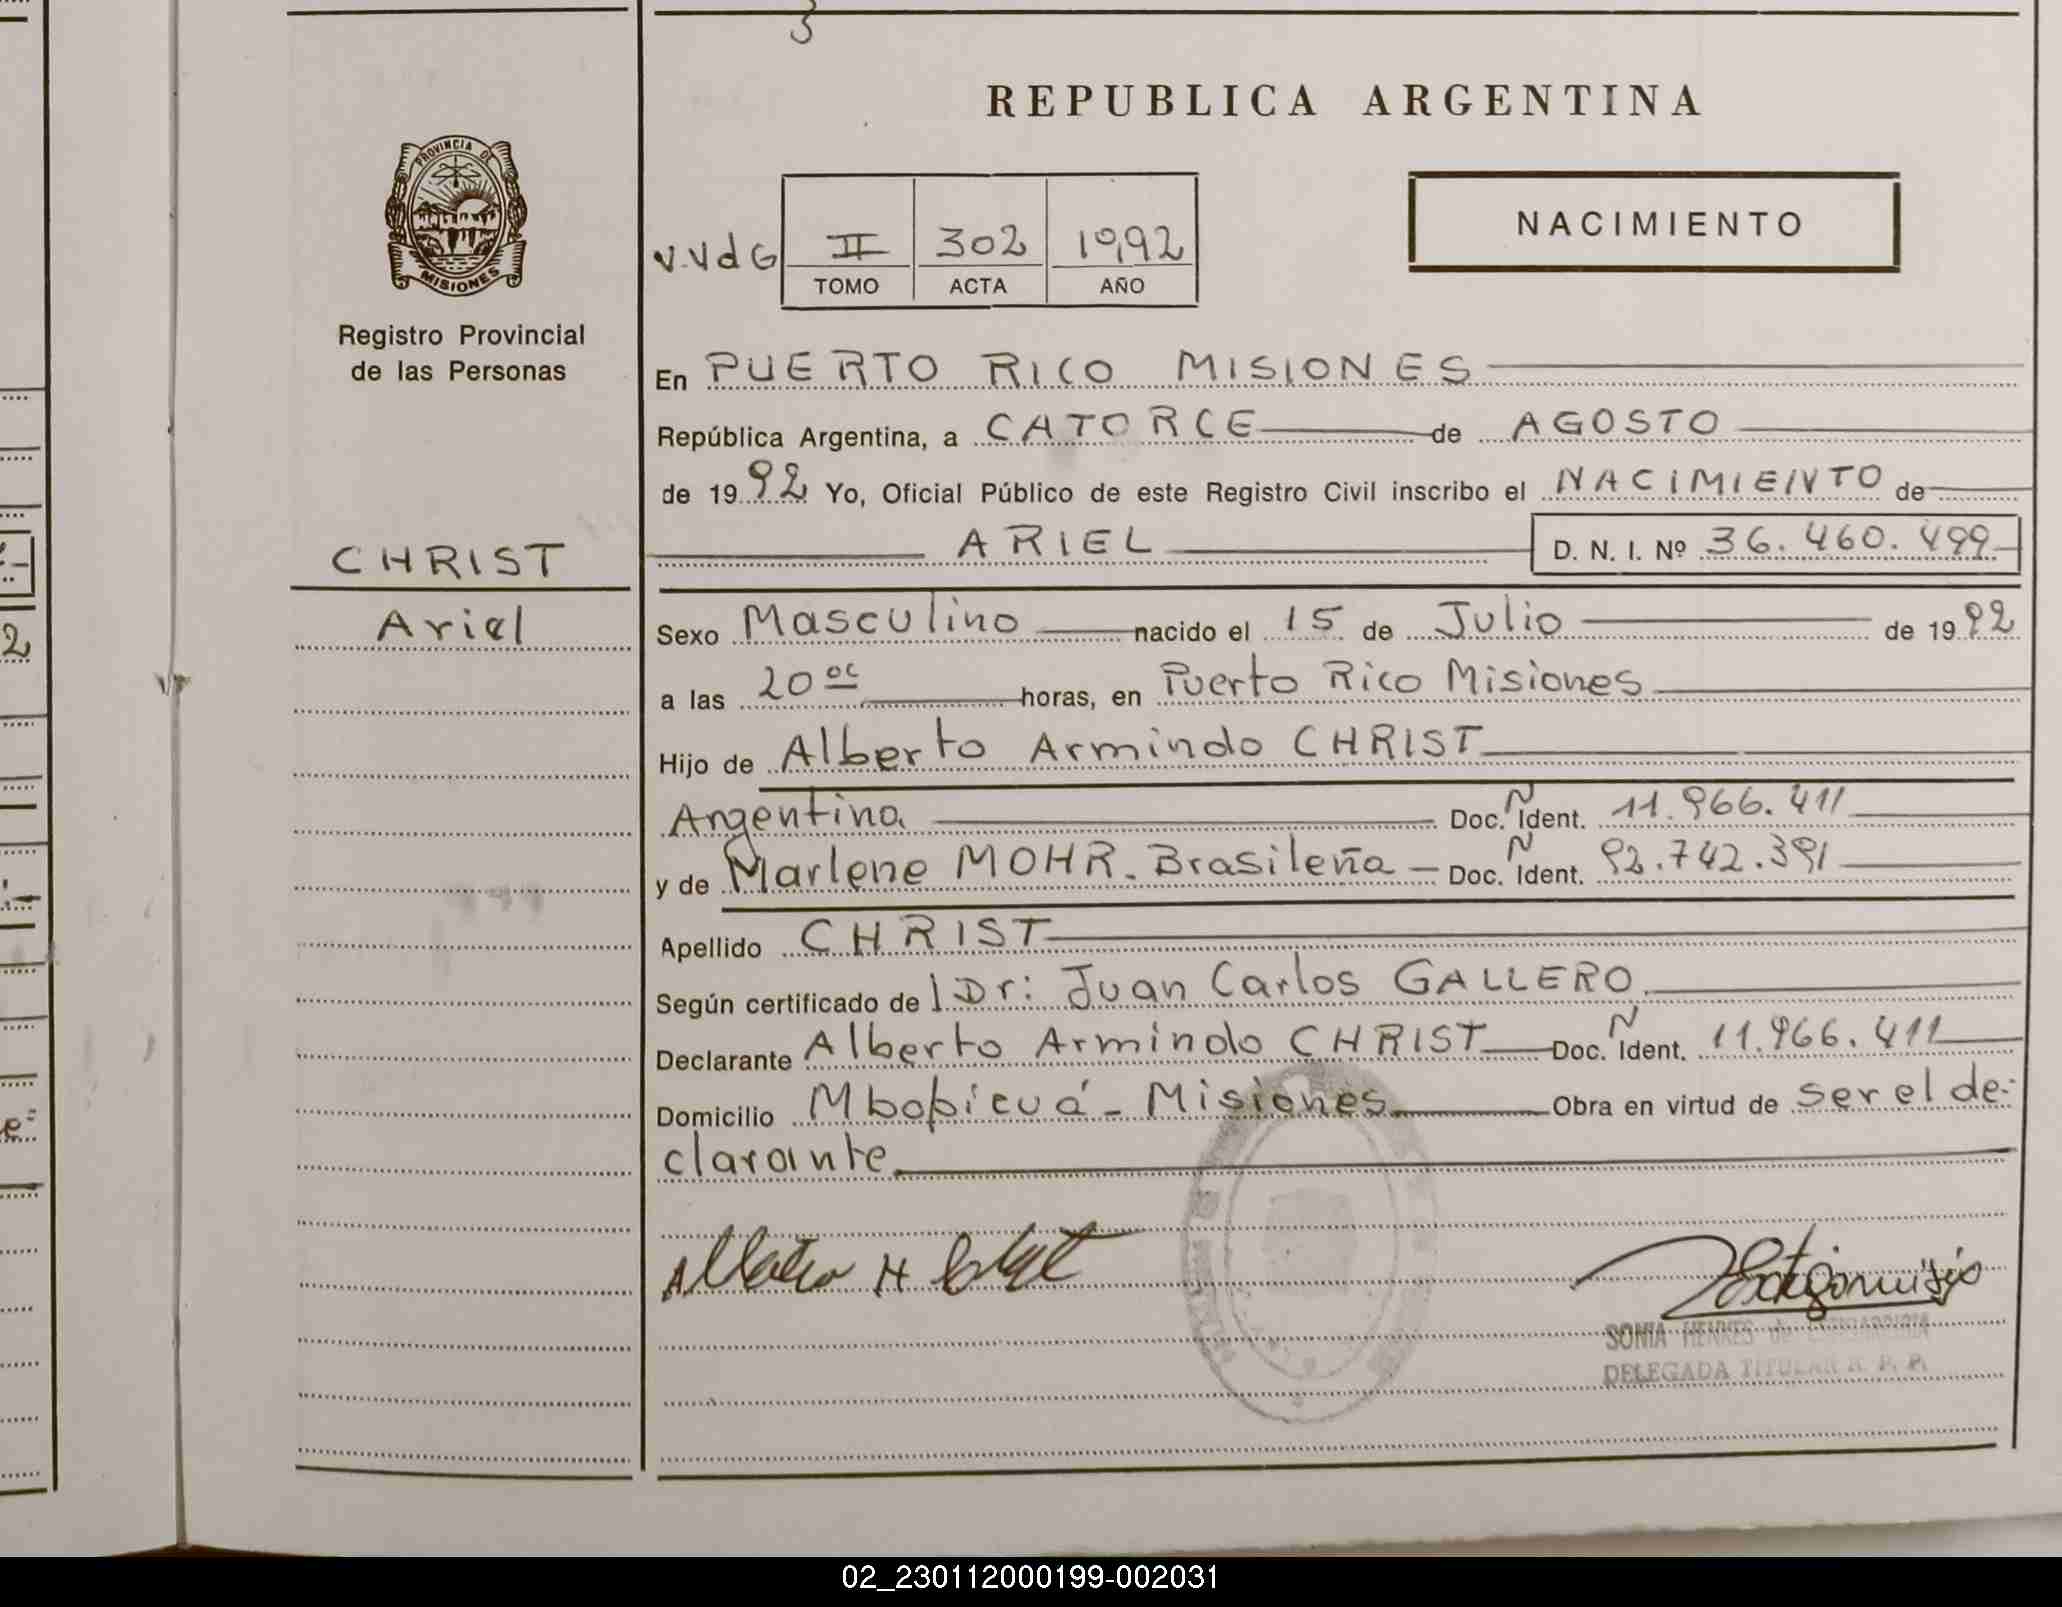 3
REPUBLICA ARGENTINA
PROVINCIA DE
MISIONES
Registro Provincial
de las Personas
NACIMIENTO
V.VdG II 302 1992
TOMO ACTA AÑO
En PUERTO RICO MISIONES
República Argentina, a CATORCE de AGOSTO
de 1992 Yo, Oficial Público de este Registro Civil inscribo el NACIMIENTO de
ARIEL D. N. I. Nº 36.460.499
CHRIST
Ariel
Sexo Masculino nacido el 15 de Julio de 1992
a las 20 oc horas, en Puerto Rico Misiones
Hijo de Alberto Armindo CHRIST
Argentina Doc. N Ident. 11.966.411
y de Marlene MOHR. Brasileña - Doc. N Ident. 92.742.391
Apellido CHRIST
Según certificado de l Dr: Juan Carlos GALLERO
Declarante Alberto Armindo CHRIST Doc. N Ident. 11.966.411
Domicilio Mbopicuá - Misiones Obra en virtud de ser el de-
clarante
SONIA HENNES de
DELEGADA TITULAR R. P. P.
2
e-
02_230112000199-002031